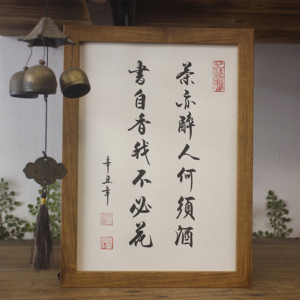 茶亦醉人何須酒
書自香我不必花
辛丑年